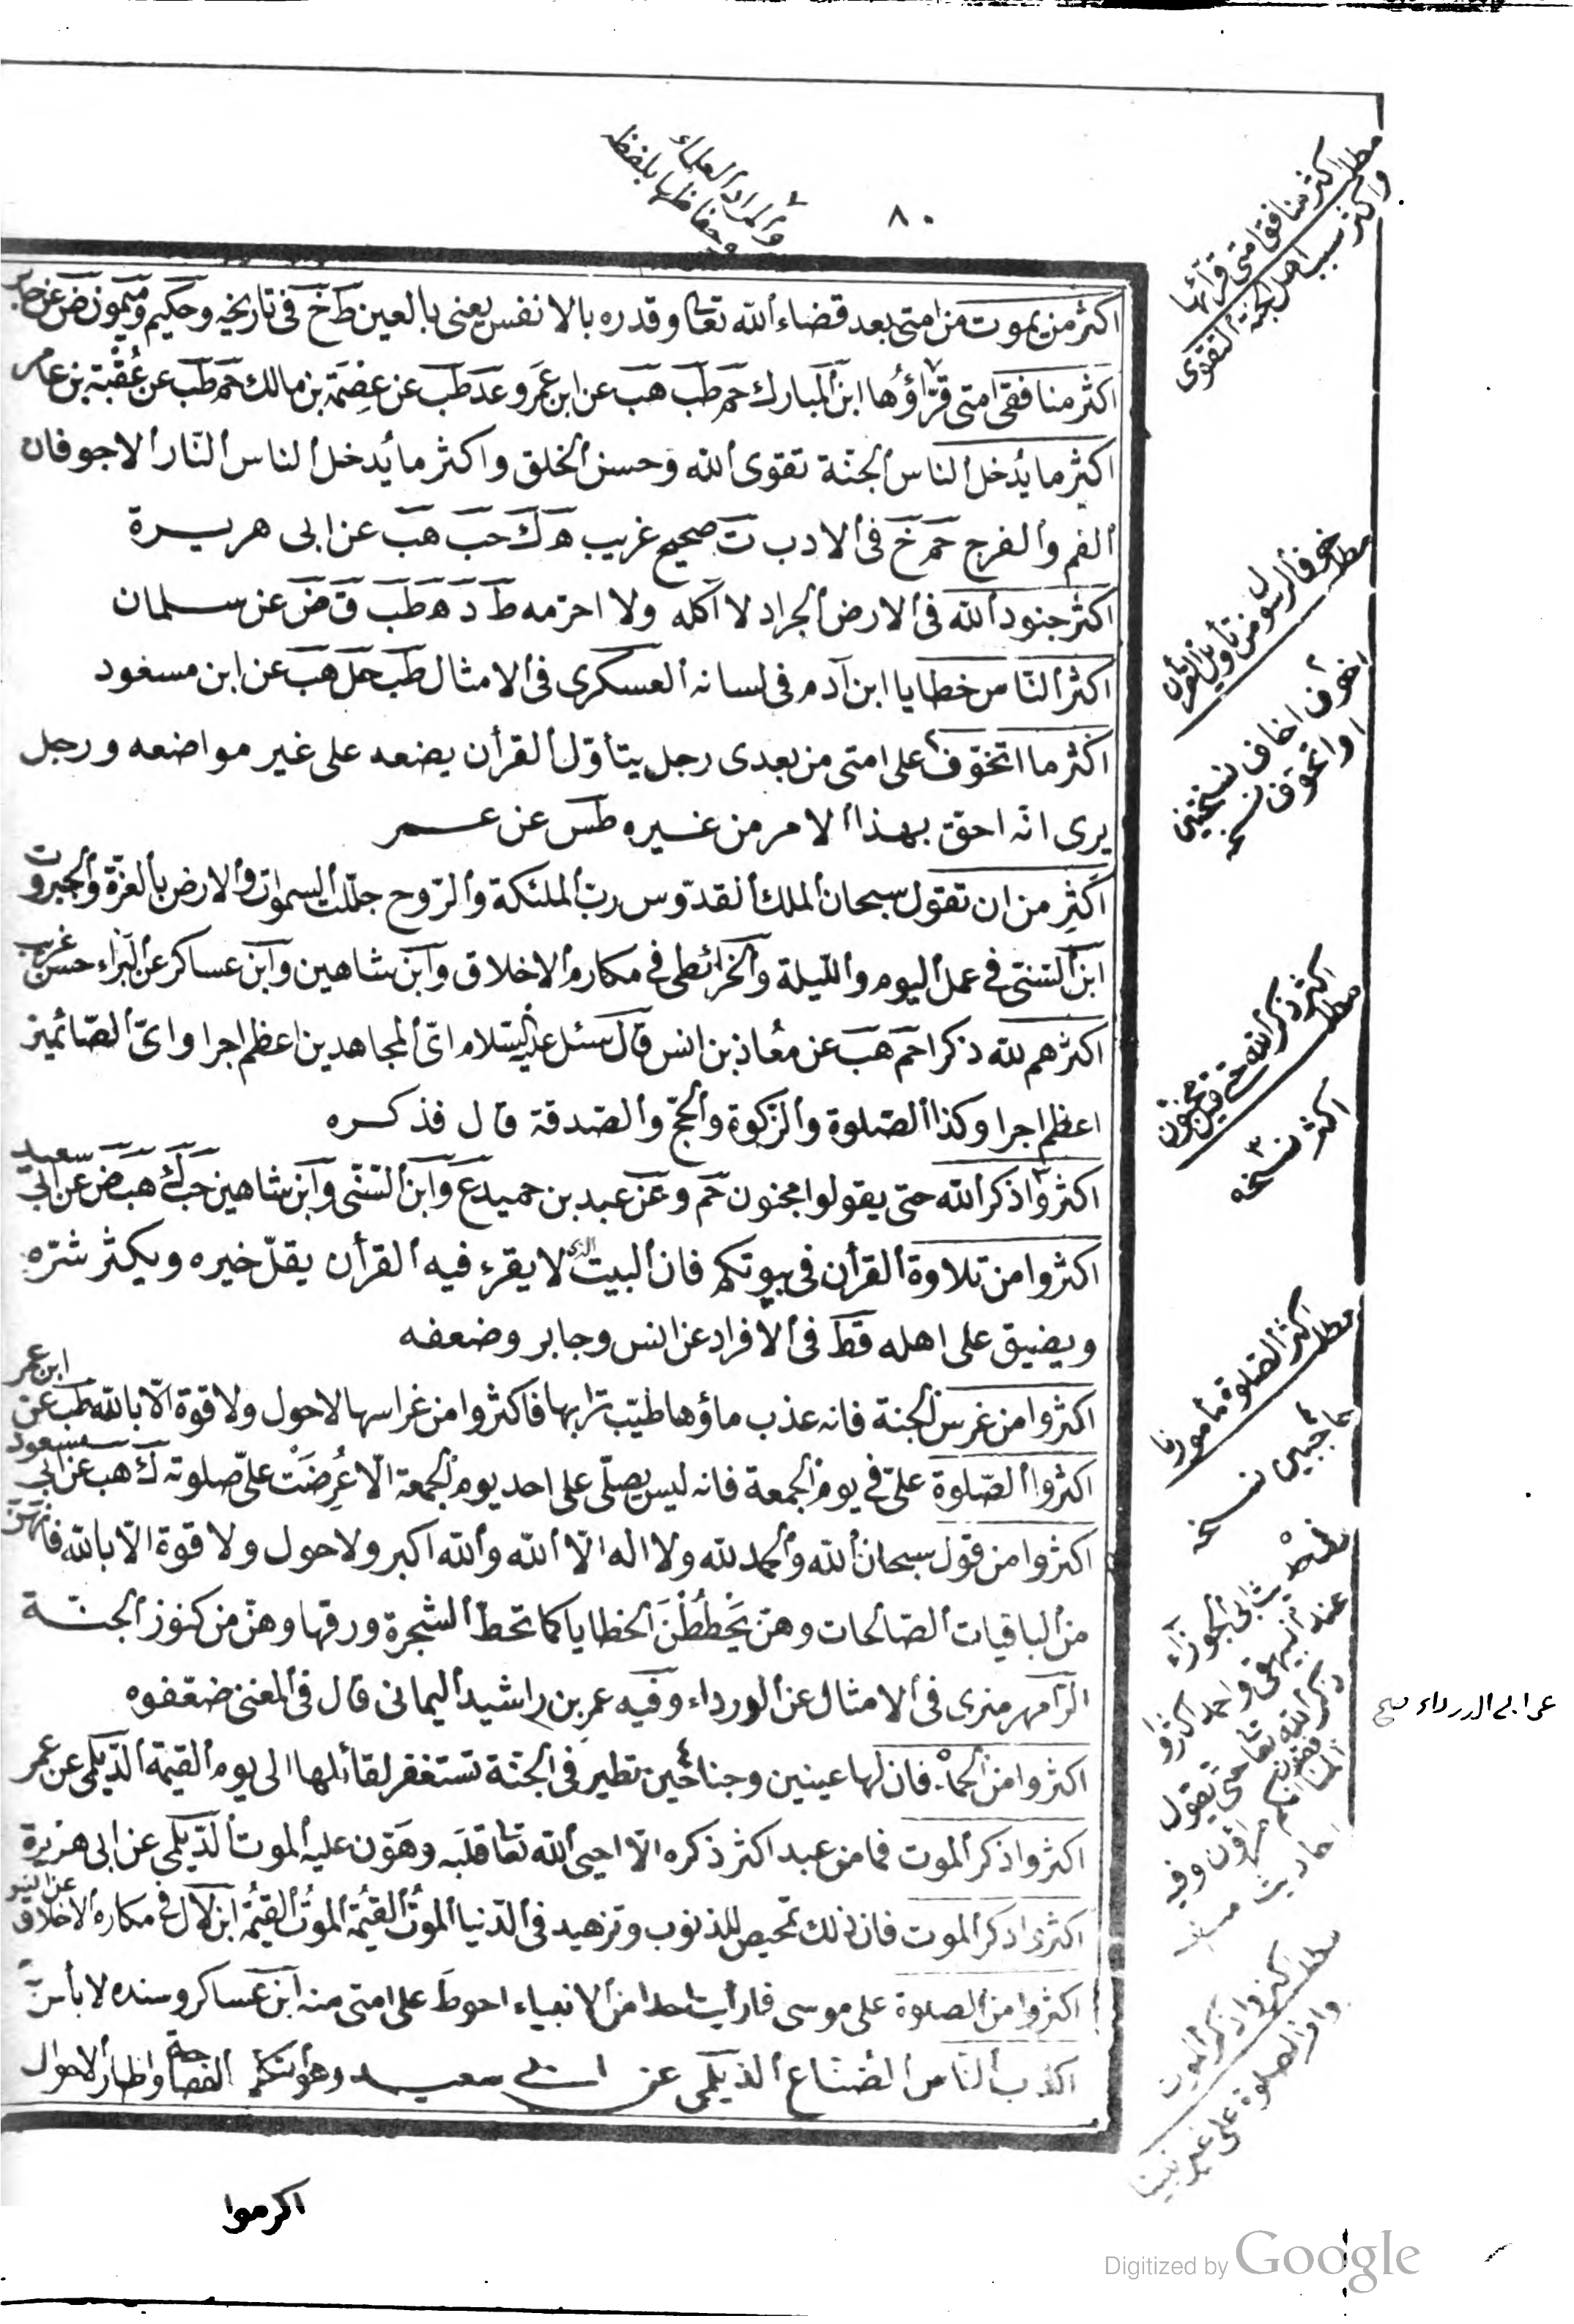 ٨٠
والمراد العلماء
وحفاظها بلفظه
اكثر من يموت من امتى بعد قضاء الله تعا وقدره بالانفس يعنى بالعين ط خ فى تاريخه وحكيم وميمون ض عن جابر
اكثر منافقى امتى قرّاؤُها ابن المبارك حم طب هب عن ابن عمرو عد طب عن عصمة بن مالك حم طب عن عُقْبة بن عامر
اكثر ما يُدخل الناس الجنّة تقوى الله وحسن الخلق واكثر ما يُدخل الناس النّار الاجوفان
الفم والفرج حم خ فى الادب ت صحيح غريب ه ك حب هب عن ابى هريرة
اكثر جنود الله فى الارض الجراد لا آكله ولا احرّمه ط د ه طب ق ض عن سلمان
اكثر النّاس خطايا ابن آدم فى لسانه العسكرى فى الامثال طب حل هب عن ابن مسعود
اكثر ما اتخوّف على امتى من بعدى رجل يتأوّل القرأن يضعه على غير مواضعه ورجل
يرى انه احقّ بهذا الامر من غيره طس عن عمر
اكثِر من ان تقول سبحان الملك القدّوس ربّ الملئكة والرّوح جلّلت السموات والارض بالعزّة والجبروت
ابن السّنّى فى عمل اليوم والليلة والخرائطى فى مكارم الاخلاق وابن شاهين وابن عساكر عن البراء حسن غريب
اكثرهم لله ذكرا حم هب عن معُاذ بن انس قال سئل عليه السّلام اىّ المجاهدين اعظم اجرا واىّ الصّائمين
اعظم اجرا وكذا الصّلوة والزّكوة والحجّ والصّدقة قال فذكره
اكثروا ذكر الله حتى يقولوا مجنون حم وعن عبد بن حميد ع وابن السّنّى وابن شاهين حب ك هب ض عن ابى سعيد
اكثروا من تلاوة القرأن فى بيوتكم فان البيت الذى لا يقرء فيه القرأن يقلّ خيره ويكثر شرّه
ويضيق على اهله قط فى الأفراد عن انس وجابر وضعفه
اكثروا من غرس الجنة فانه عذب ماؤها طيّب ترابها فاكثروا من غراسها لاحول ولا قوة الّا بالله طب عن ابن عمر
اكثروا الصّلوة علىّ فى يوم الجمعة فانه ليس يصلّى على احد يوم الجمعة الّا عُرِضَتْ علىّ صلوته ك هب عن ابى مسعود
اكثروا من قول سبحان الله والحمد لله ولا اله الّا الله والله اكبر ولا حول ولا قوة الّا بالله فانهنّ
من الباقيات الصّالحات وهنّ يَحْطُطْنَ الخطايا كما تحطّ الشجرة ورقها وهنّ من كنوز الجنّة
الرّامهرمزى فى الامثال عن الورداء وفيه عمر بن راشيد اليمانى قال فى المغنى ضعّفوه
اكثروا من الحمد فان لها عينين وجناحين تطير فى الجنّة تستغفر لقائلها الى يوم القيمة الدّيلمى عن عمر
اكثروا ذكر الموت فما من عبد اكثر ذكره الّا احيى الله تعا قلبَه وهَوّن عليه الموت الدّيلمى عن ابى هريرة
اكثروا ذكر الموت فان ذلك تمحيص للذنوب وتزهيد فى الدّنيا الموتُ القيمُة الموتُ القيمُة ابن لال فى مكارم الاخلاق عن انس
اكثروا من الصلوة على موسى فما رأيت احدا من الانبياء احوط على امتى منه ابن عساكر وسنده لا بأس
اكذب النّاس الصّنّاع الديلمى عن ابى سعيد
اكرموا
مطلب اكثر منافقى امتى قرّائها
واكثر سبب اهل الجنة التقوى
مطلب خوف الرسول
من تأويل القرأن
اخوف اخاف نسختين
او اتخوف نسخه
مطلب اكثر ذكر الله حتى قيل مجنون
اكثر نسخه
مطلب اكثر الصلوة مأمورنا
عند البيهقى واحمد اكثروا
ذكر الله تعا حتى يقول
المنافقون انكم مراؤن وفيه
احاديث
عن ابى الدرداء صح
مطلب اكثروا ذكر الموت
واذ الصلوة على غير نبينا
Digitized by Google